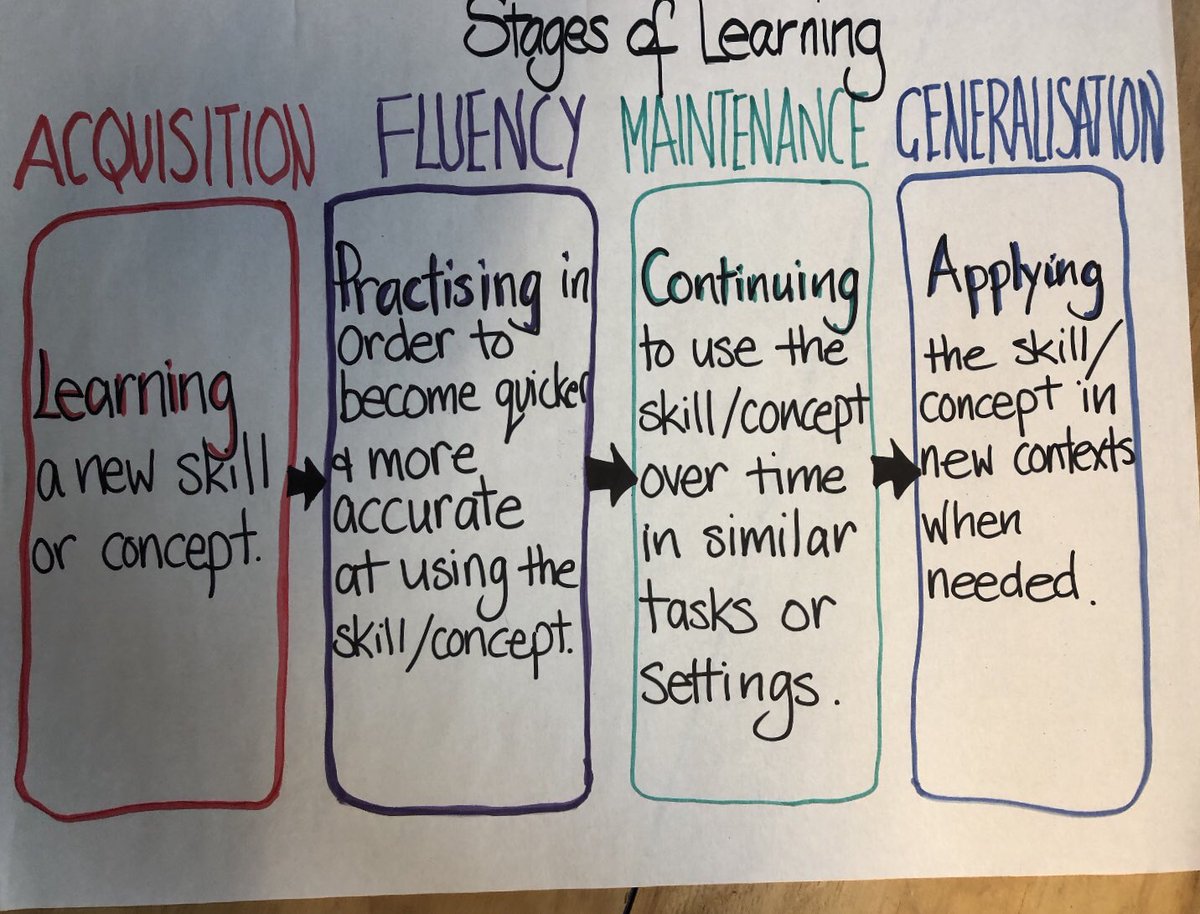 Stages of Learning
ACQUISITION
Learning
a new skill
or concept.
FLUENCY
Practising in
order to
become quicker
& more
accurate
at using the
skill/concept.
MAINTENANCE
Continuing
to use the
skill/concept
over time
in similar
tasks or
settings.
GENERALISATION
Applying
the skill/
concept in
new contexts
when
needed.